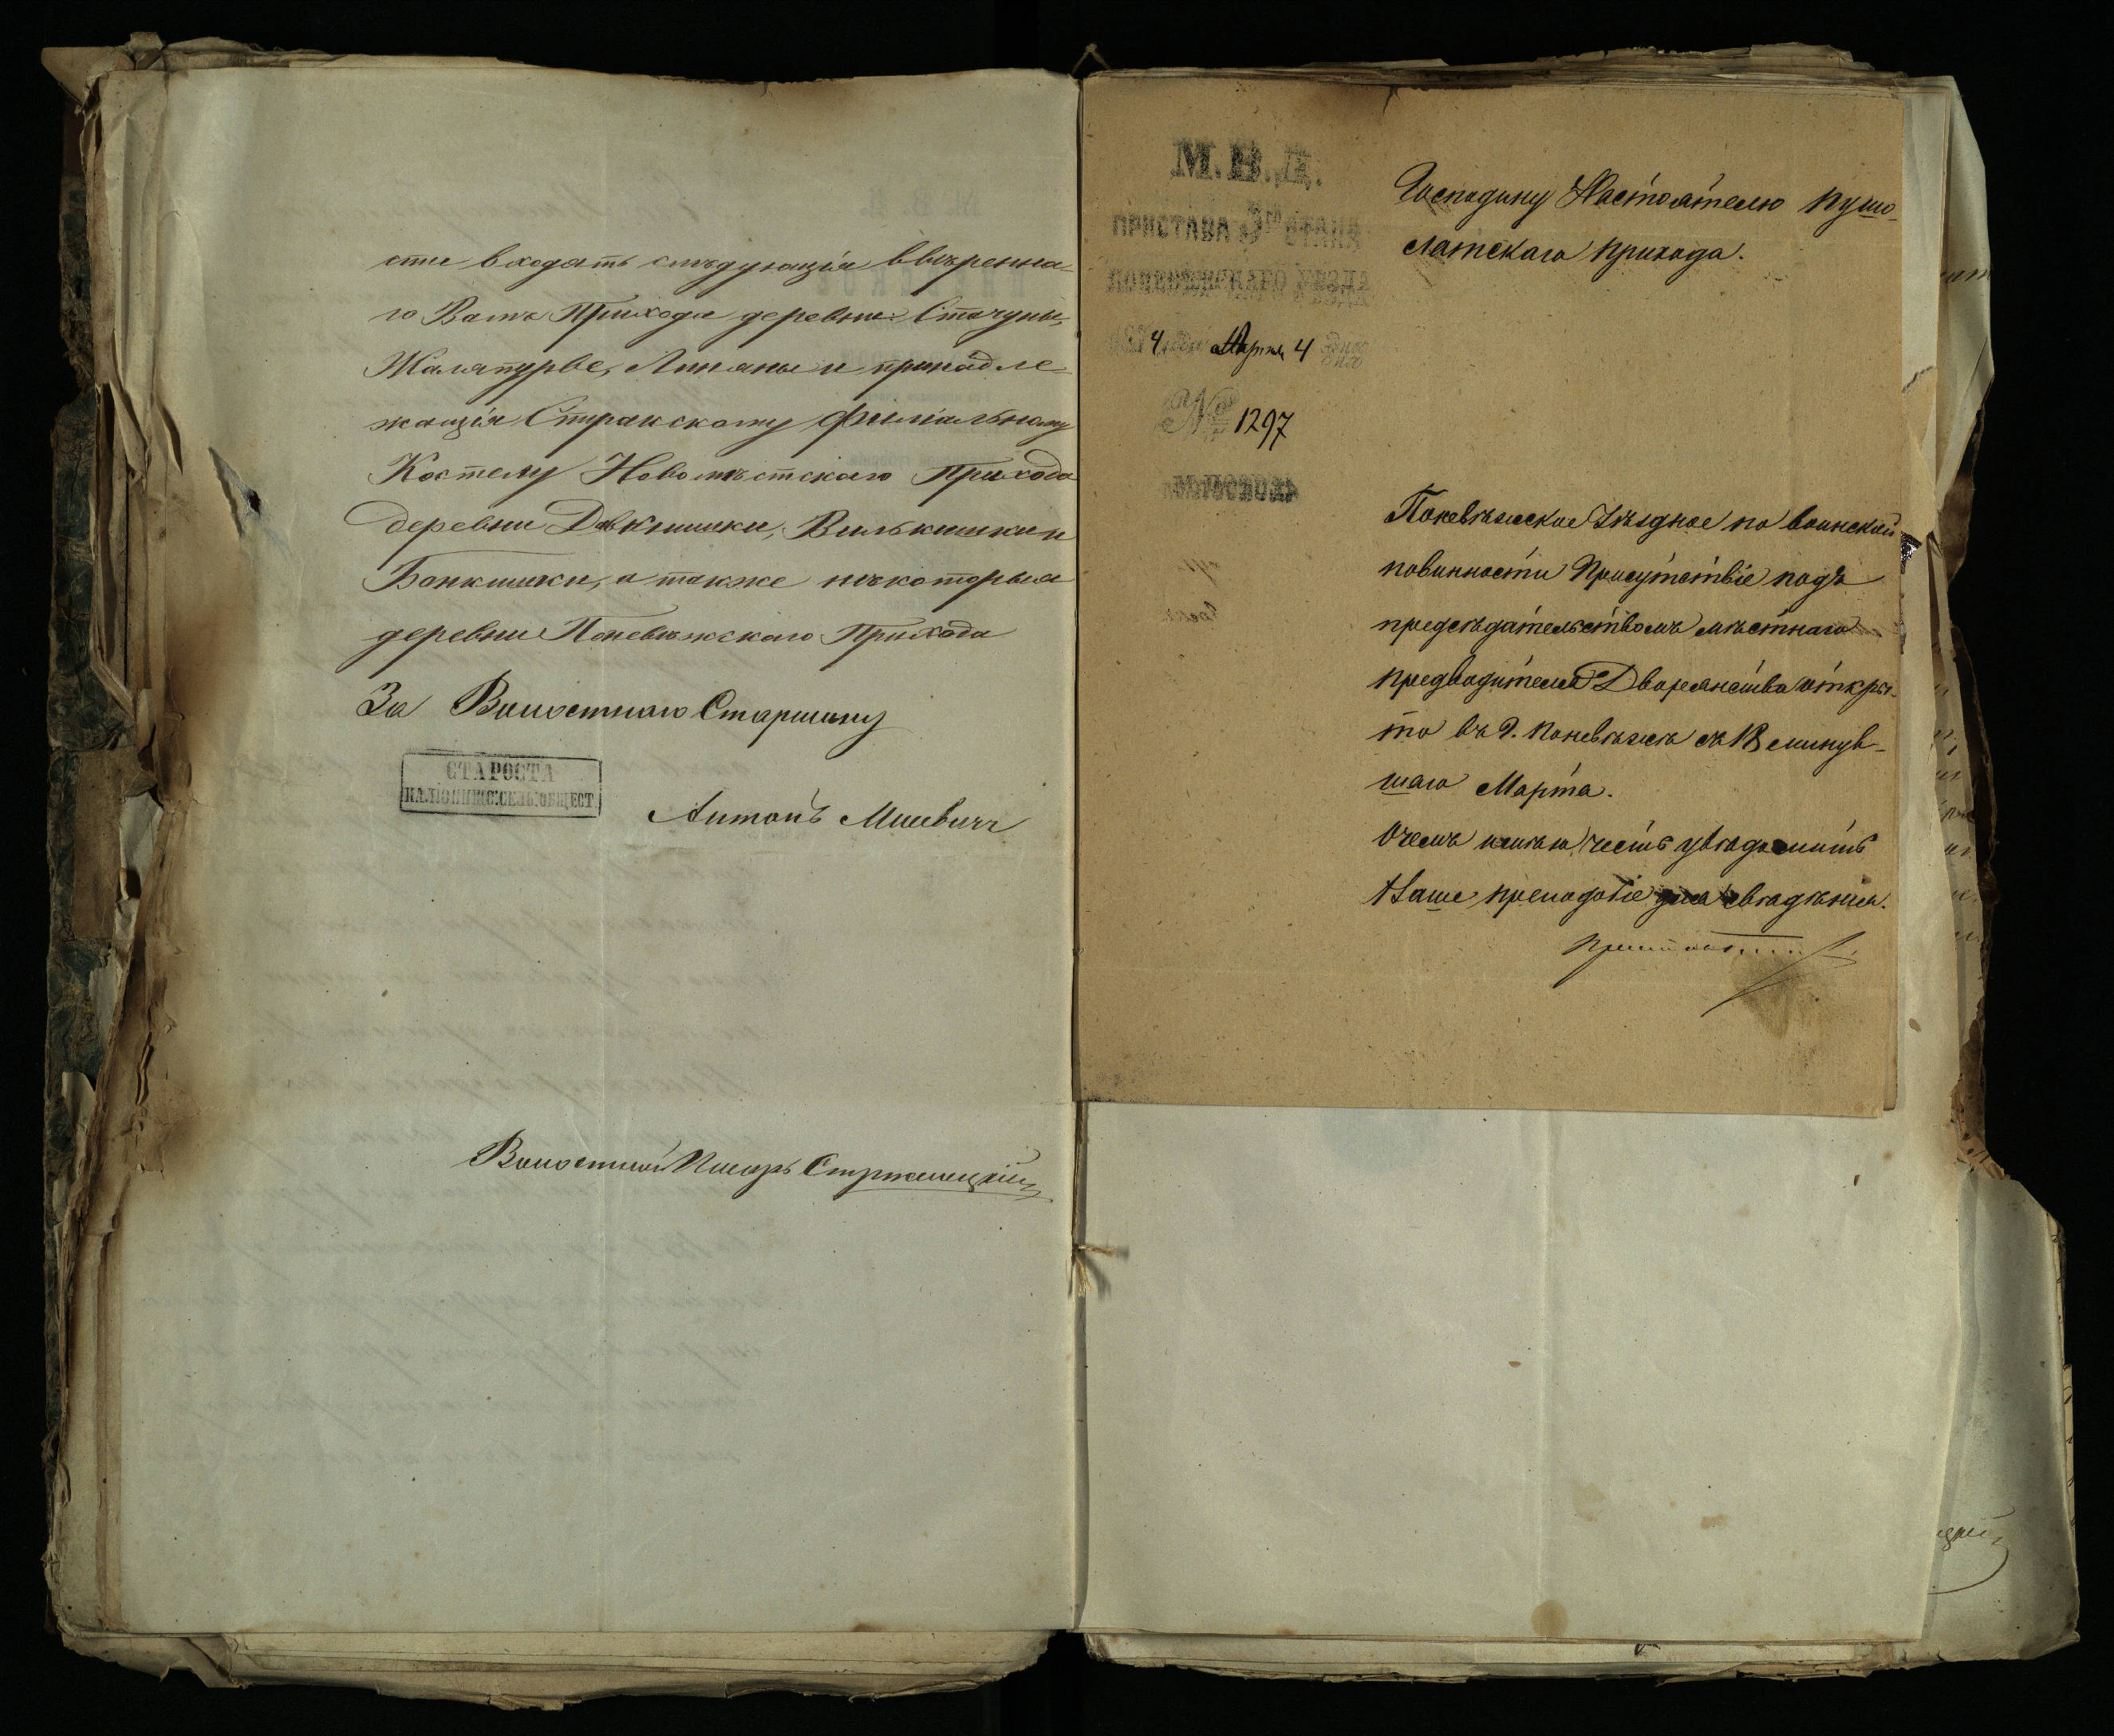 сти входятъ слѣдующія ввѣренна-
го Вамъ Прихода деревни: Стачуны,
Жалятурве, Линаны и принадле-
жащія Стракскому филіальному
Костелу Новомѣстскаго Прихода
деревни Дѣкнишки, Вилькишки и
Бонкишки, а также нѣкоторыя
деревни Поневѣжскаго Прихода
За Волостнаго Старшину
СТАРОСТА
СЕЛЬ: ОБЩЕСТ
Антонъ
Волостной Писарь
М. В. Д.
ПРИСТАВА 3го СТАНА
ПОНЕВѢЖСКАГО УѢЗДА
4 4 дня
№ 1297
Господину Настоятелю Пушо-
латскаго прихода.
Поневѣжское Уѣздное по воинской
повинности Присутствіе подъ
предсѣдательствомъ мѣстнаго
предводителя Дворянства откры-
то въ г. Поневѣжѣ съ 18 минув-
шаго Марта.
О чемъ имѣю честь увѣдомить
Ваше преподобіе для свѣдѣнія.